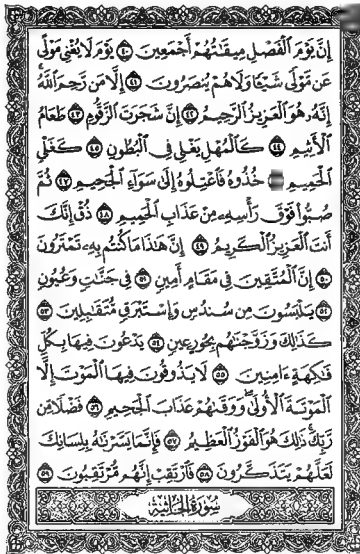 إِنَّ يَوْمَ ٱلْفَصْلِ مِيقَٰتُهُمْ أَجْمَعِينَ ٤٠ يَوْمَ لَا يُغْنِى مَوْلًى
عَن مَّوْلًى شَيْـًٔا وَلَا هُمْ يُنصَرُونَ ٤١ إِلَّا مَن رَّحِمَ ٱللَّهُ
إِنَّهُۥ هُوَ ٱلْعَزِيزُ ٱلرَّحِيمُ ٤٢ إِنَّ شَجَرَتَ ٱلزَّقُّومِ ٤٣ طَعَامُ
ٱلْأَثِيمِ ٤٤ كَٱلْمُهْلِ يَغْلِى فِى ٱلْبُطُونِ ٤٥ كَغَلْىِ
ٱلْحَمِيمِ خُذُوهُ فَٱعْتِلُوهُ إِلَىٰ سَوَآءِ ٱلْجَحِيمِ ٤٧ ثُمَّ
صُبُّوا۟ فَوْقَ رَأْسِهِۦ مِنْ عَذَابِ ٱلْحَمِيمِ ٤٨ ذُقْ إِنَّكَ
أَنتَ ٱلْعَزِيزُ ٱلْكَرِيمُ ٤٩ إِنَّ هَٰذَا مَا كُنتُم بِهِۦ تَمْتَرُونَ
٥٠ إِنَّ ٱلْمُتَّقِينَ فِى مَقَامٍ أَمِينٍ ٥١ فِى جَنَّٰتٍ وَعُيُونٍ
٥٢ يَلْبَسُونَ مِن سُندُسٍ وَإِسْتَبْرَقٍ مُّتَقَٰبِلِينَ ٥٣
كَذَٰلِكَ وَزَوَّجْنَٰهُم بِحُورٍ عِينٍ ٥٤ يَدْعُونَ فِيهَا بِكُلِّ
فَٰكِهَةٍ ءَامِنِينَ ٥٥ لَا يَذُوقُونَ فِيهَا ٱلْمَوْتَ إِلَّا
ٱلْمَوْتَةَ ٱلْأُولَىٰ وَوَقَىٰهُمْ عَذَابَ ٱلْجَحِيمِ ٥٦ فَضْلًا مِّن
رَّبِّكَ ذَٰلِكَ هُوَ ٱلْفَوْزُ ٱلْعَظِيمُ ٥٧ فَإِنَّمَا يَسَّرْنَٰهُ بِلِسَانِكَ
لَعَلَّهُمْ يَتَذَكَّرُونَ ٥٨ فَٱرْتَقِبْ إِنَّهُم مُّرْتَقِبُونَ ٥٩
سُورَةُ الجَاثِيَةِ